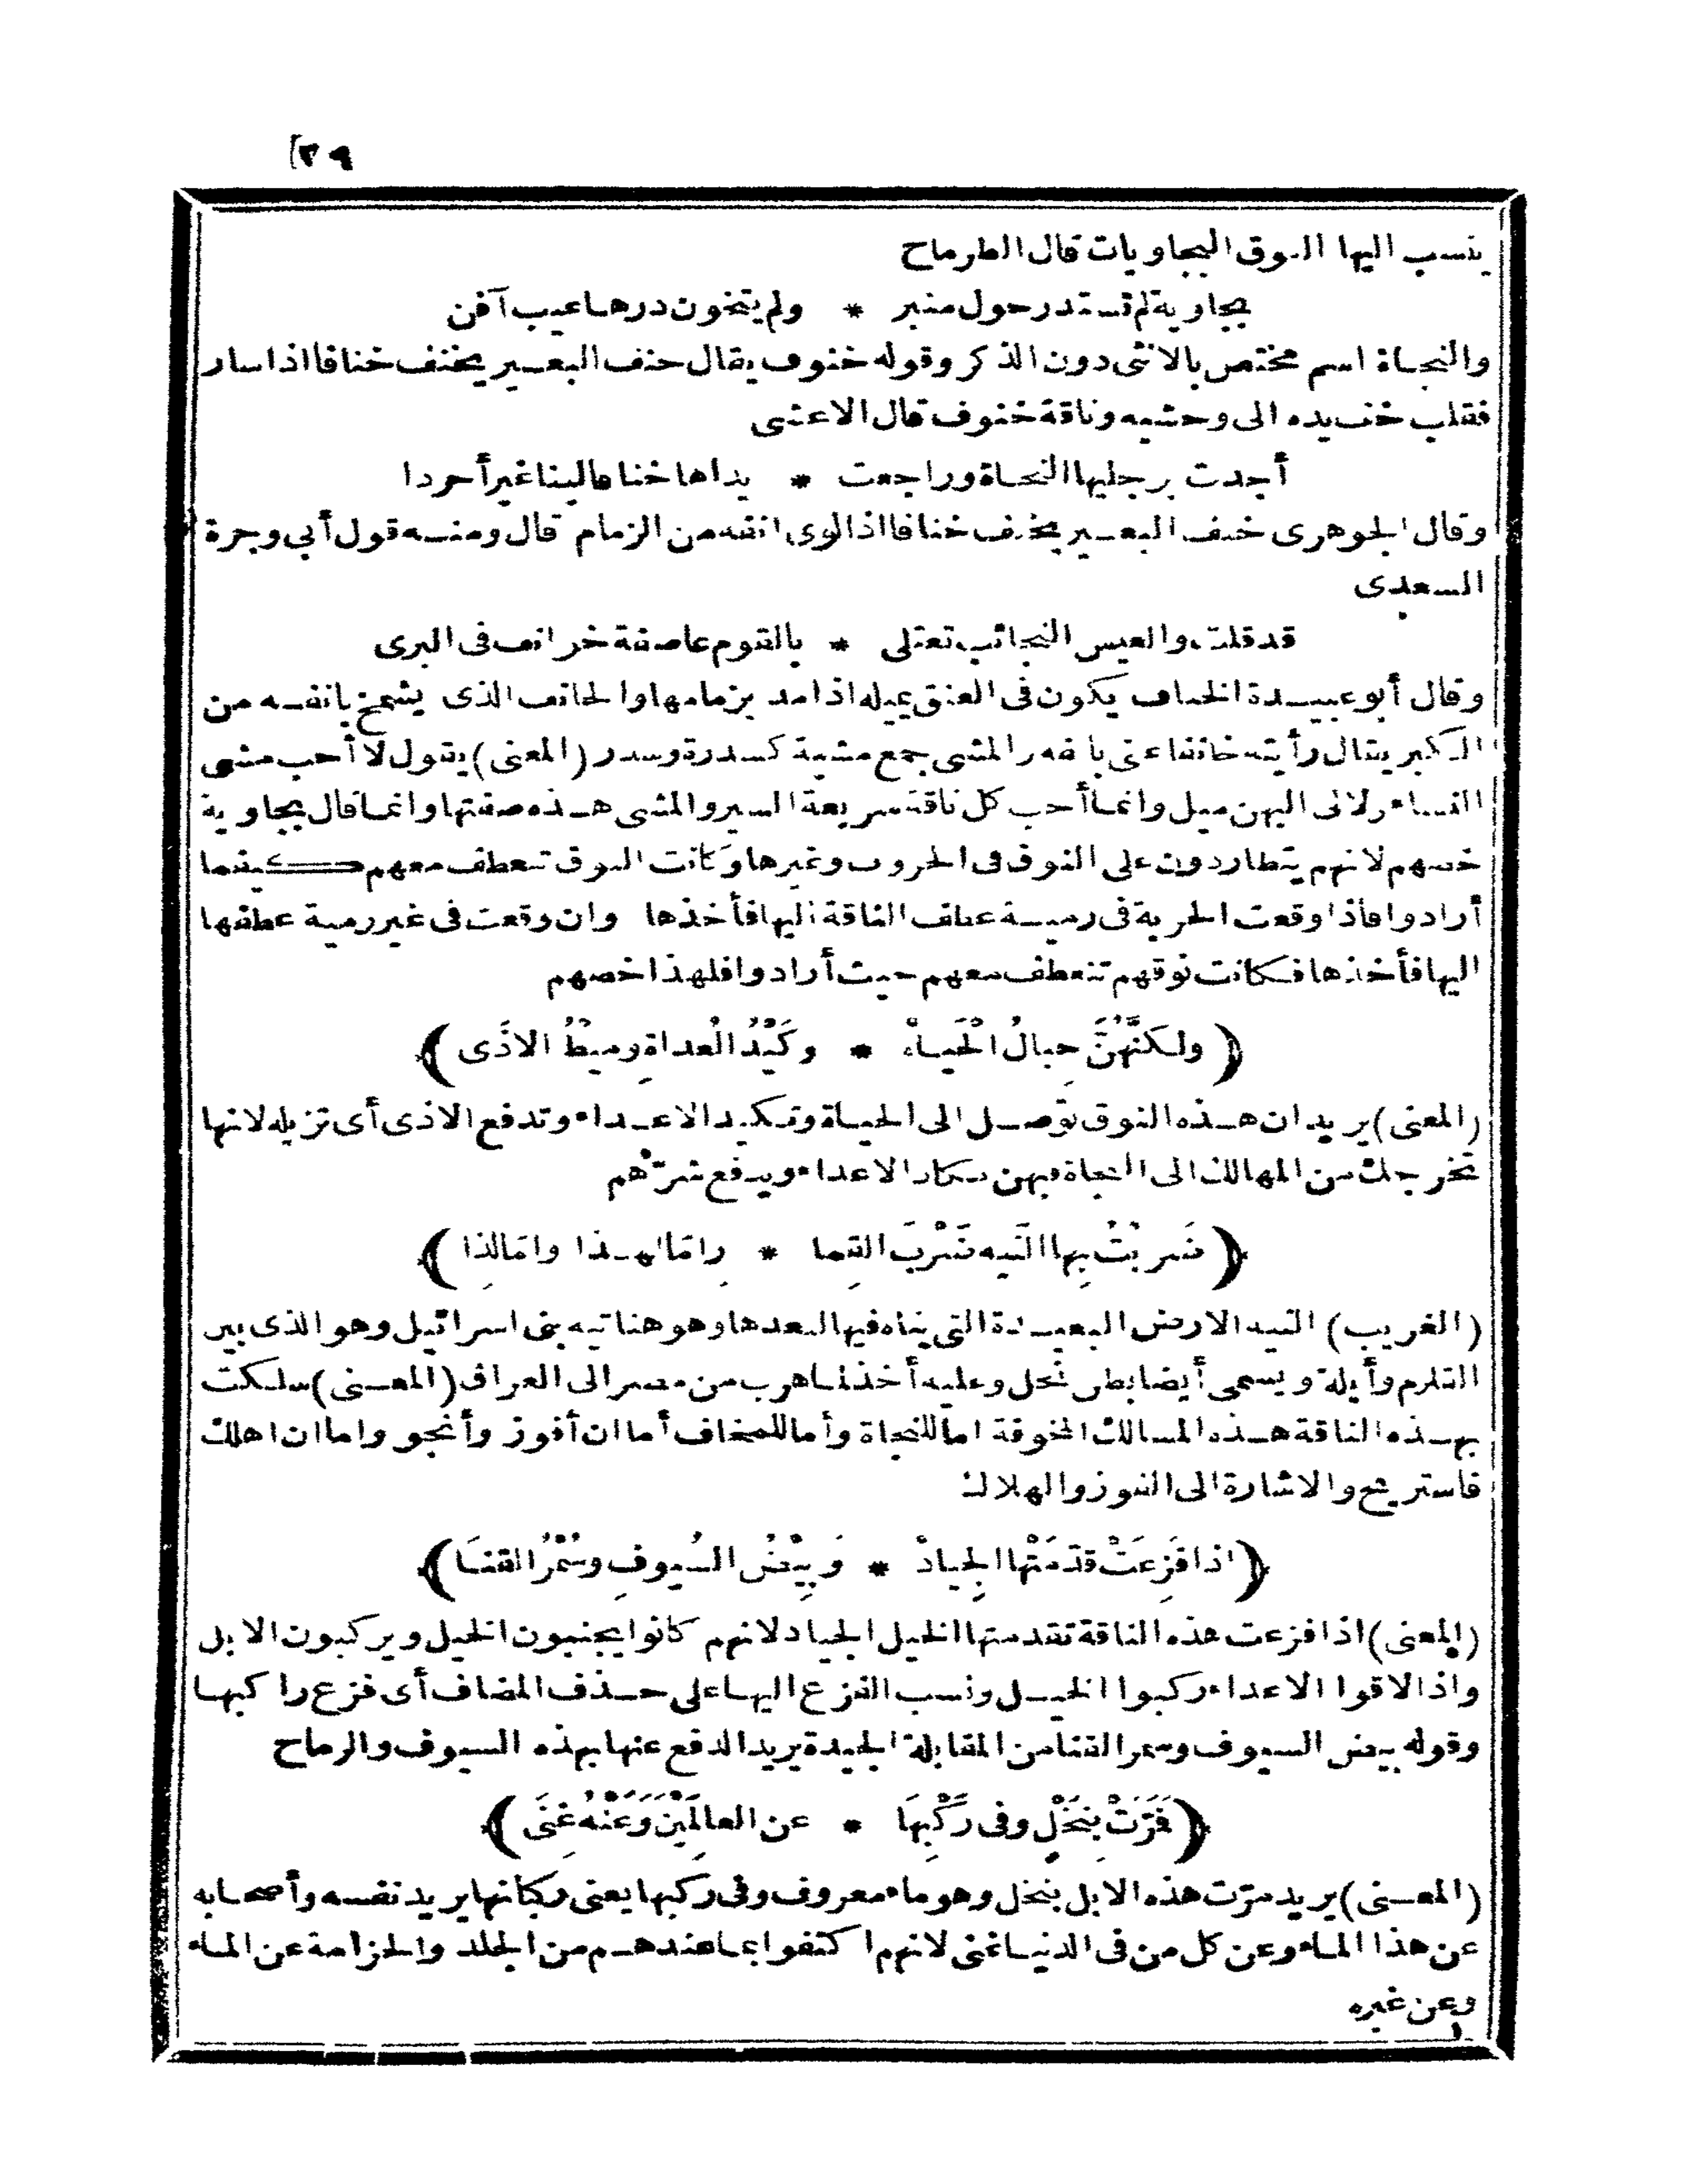 ٢٩
ينسب اليها النوق البجاويات قال الطرماح
بجاوية لم تستدر حول مثبر * ولم يتخون درها ضب آفن
والنجاة اسم مختص بالانثى دون الذكر وقوله خنوف يقال خنف البعير يخنف خنافا اذا سار
فقلب خف يده الى وحشيه وناقة خنوف قال الاعشى
أجدت برجليها النجاة وراجعت * يداها خنافا لينا غير أحردا
وقال الجوهرى خنف البعير يخنف خنافا اذا لوى انفه من الزمام قال ومنه قول أبى وجزة
السعدى
قد قلت والعيس النجائب تغتلى * بالقوم عاصفة خوانف فى البرى
وقال أبو عبيدة الخناف يكون فى العنق يميله اذا مد بزمامها والخانف الذى يشمخ بانفه من
الكبر يقال رأيته خانفا عنى بانفه والمشى جمع مشية كسدرة وسدر (المعنى) يقول لا أحب مشى
النساء ولا لى اليهن ميل وانما أحب كل ناقة سريعة السير والمشى هذه صفتها وانما قال بجاوية
خصهم لانهم يتطاردون على النوق فى الحروب وغيرها وكانت النوق تنعطف معهم كيفما
أرادوا فاذا وقعت الحربة فى رمية عطف الناقة اليها فأخذها وان وقعت فى غير رمية عطفها
اليها فأخذها فكانت نوقهم تنعطف معهم حيث أرادوا فلهذا خصهم
(ولكنَّهُنَّ حِبالُ الْحَياةْ * وكَيْدُ الْعداةِ ومَيْطُ الاذَى)
(المعنى) يريد ان هذه النوق توصل الى الحياة وتكيد الاعداء وتدفع الاذى أى تزيله لانها
تخرجك من المهالك الى النجاة فبهن تكاد الاعداء ويدفع شرّهم
(ضَربْتُ بِها التّيه ضَرْبَ القِما * رِ امّا لهذا وامّا لِذا)
(الغريب) التيه الارض البعيدة التى يتاه فيها لبعدها وهو هنا تيه بنى اسرائيل وهو الذى بين
القلزم وأيلة ويسمى أيضا بطن نخل وعليه أخذ لما هرب من مصر الى العراق (المعنى) سلكت
بهذه الناقة هذه المسالك المخوفة اما للنجاة وأما للمخاف أما ان أفوز وأنجو واما ان اهلك
فاستريح والاشارة الى الفوز والهلاك
(اذا فَزِعَتْ قدّمَتْها الجِيادْ * وَبِيْضُ السُيوفِ وسُمْرُ القنَا)
(المعنى) اذا فزعت هذه الناقة تقدمتها الخيل الجياد لانهم كانوا يجنبون الخيل ويركبون الابل
واذا لاقوا الاعداء ركبوا الخيل ونسب الفزع اليها على حذف المضاف أى فزع راكبها
وقوله بيض السيوف وسمر القنا من المقابلة الجيدة يريد الدفع عنها بهذه السيوف والرماح
(فَمَرّتْ بِنَخْلٍ وفى رَكْبِهَا * عن العالَمِيْنَ وَعَنْهُ غِنَى)
(المعنى) يريد مرّت هذه الابل بنخل وهو ماء معروف وفى ركبها يعنى ركبانها يريد نفسه وأصحابه
عن هذا الماء وعن كل من فى الدنيا غنى لانهم اكتفوا بما عندهم من الجلد والحزامة عن الماء
وعن غيره